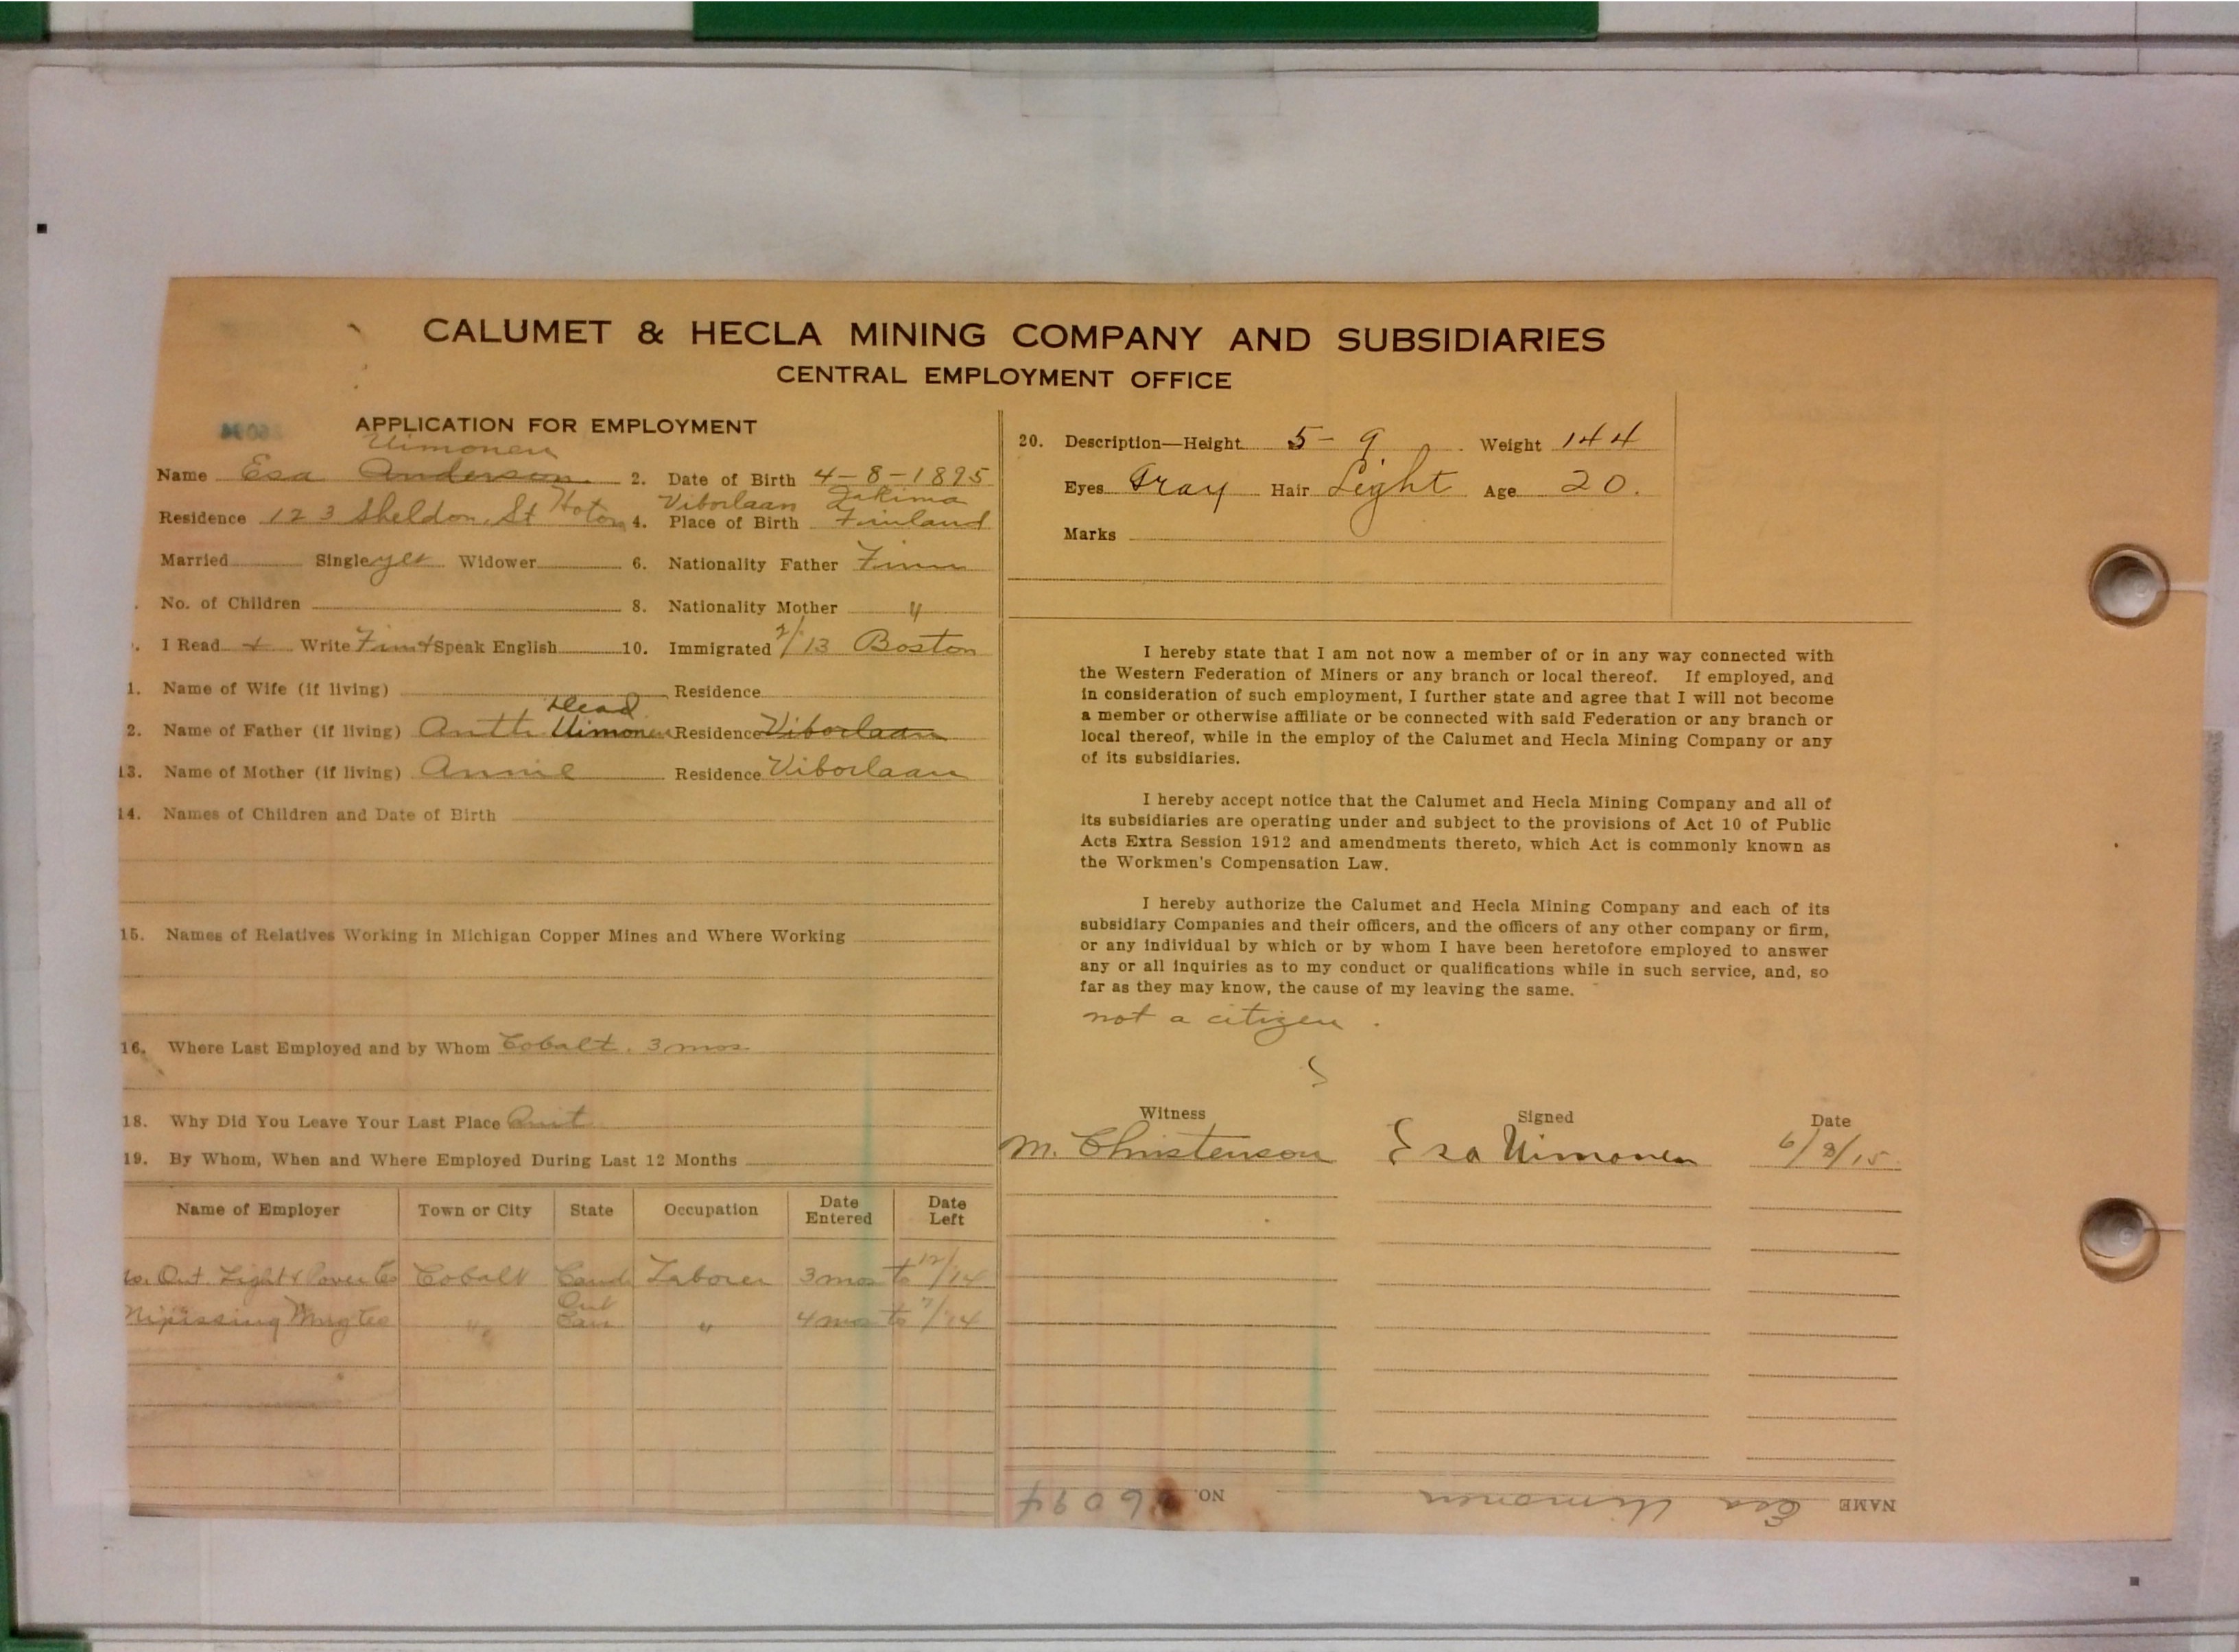 CALUMET & HECLA MINING COMPANY AND SUBSIDIARIES
CENTRAL EMPLOYMENT OFFICE
APPLICATION FOR EMPLOYMENT
Uimonen
Name Esa Anderson 2. Date of Birth 4-8-1895
Viborlaan Jakima
Residence 123 Sheldon St Hoton 4. Place of Birth Finland
Married Single yes Widower 6. Nationality Father Finn
No. of Children 8. Nationality Mother "
I Read + Write Finn + Speak English 10. Immigrated /13 Boston
1. Name of Wife (if living) Residence
Dead
2. Name of Father (if living) Antti Uimonen Residence Viborlaan
13. Name of Mother (if living) Annie Residence Viborlaan
14. Names of Children and Date of Birth
15. Names of Relatives Working in Michigan Copper Mines and Where Working
16. Where Last Employed and by Whom Cobalt. 3 mos
18. Why Did You Leave Your Last Place Quit
19. By Whom, When and Where Employed During Last 12 Months
Name of Employer Town or City State Occupation Date Entered Date Left
No. Ont. Light & Power Co Cobalt Cand Laborer 3 mos to 12/14
Ont
Nipissing Mng Co " Can " 4 mos to 7/14
20. Description—Height 5-9 Weight 144
Eyes Gray Hair Light Age 20.
Marks
I hereby state that I am not now a member of or in any way connected with
the Western Federation of Miners or any branch or local thereof. If employed, and
in consideration of such employment, I further state and agree that I will not become
a member or otherwise affiliate or be connected with said Federation or any branch or
local thereof, while in the employ of the Calumet and Hecla Mining Company or any
of its subsidiaries.
I hereby accept notice that the Calumet and Hecla Mining Company and all of
its subsidiaries are operating under and subject to the provisions of Act 10 of Public
Acts Extra Session 1912 and amendments thereto, which Act is commonly known as
the Workmen's Compensation Law.
I hereby authorize the Calumet and Hecla Mining Company and each of its
subsidiary Companies and their officers, and the officers of any other company or firm,
or any individual by which or by whom I have been heretofore employed to answer
any or all inquiries as to my conduct or qualifications while in such service, and, so
far as they may know, the cause of my leaving the same.
not a citizen.
Witness Signed Date
M. Christenson Esa Uimonen 6/8/15
NAME Esa Uimonen NO. 26094